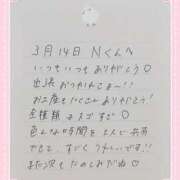 3月14日 Nくんへ
いつもいつもありがとう♡
出張おつかれさまー!!
お土産もたくさんありがとう!
全種類 スゴすご♡
色んな時間を 共有
できて、すごくうれしいです!!
また次もたのしみだね♡